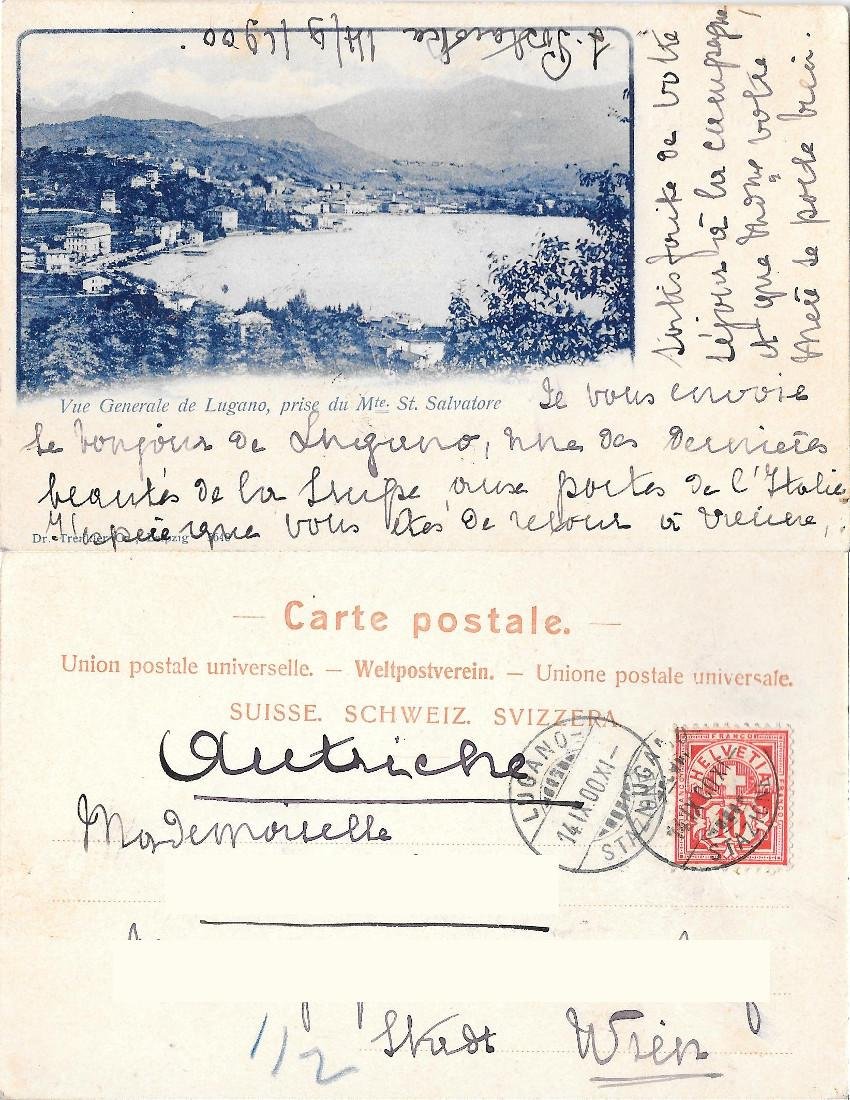 Vue Generale de Lugano, prise du Mte. St. Salvatore
Je vous envoie
le bonjour de Lugano, une des dernieres
beautés de la Suisse, aux portes de l'Italie
J'espère que vous êtes de retour à Vienne,
satisfaite de votre
séjour à la campagne
et que Mme votre
Mère se porte bien.
14/9/1900.
Dr. Trenkler Co., Leipzig
— Carte postale. —
Union postale universelle. — Weltpostverein. — Unione postale universale.
SUISSE. SCHWEIZ. SVIZZERA.
Autriche
Mademoiselle
Stadt Wien
1/2
LUGANO
14.IX.00.XI–
STAZNE
FRANCO
HELVETIA
10